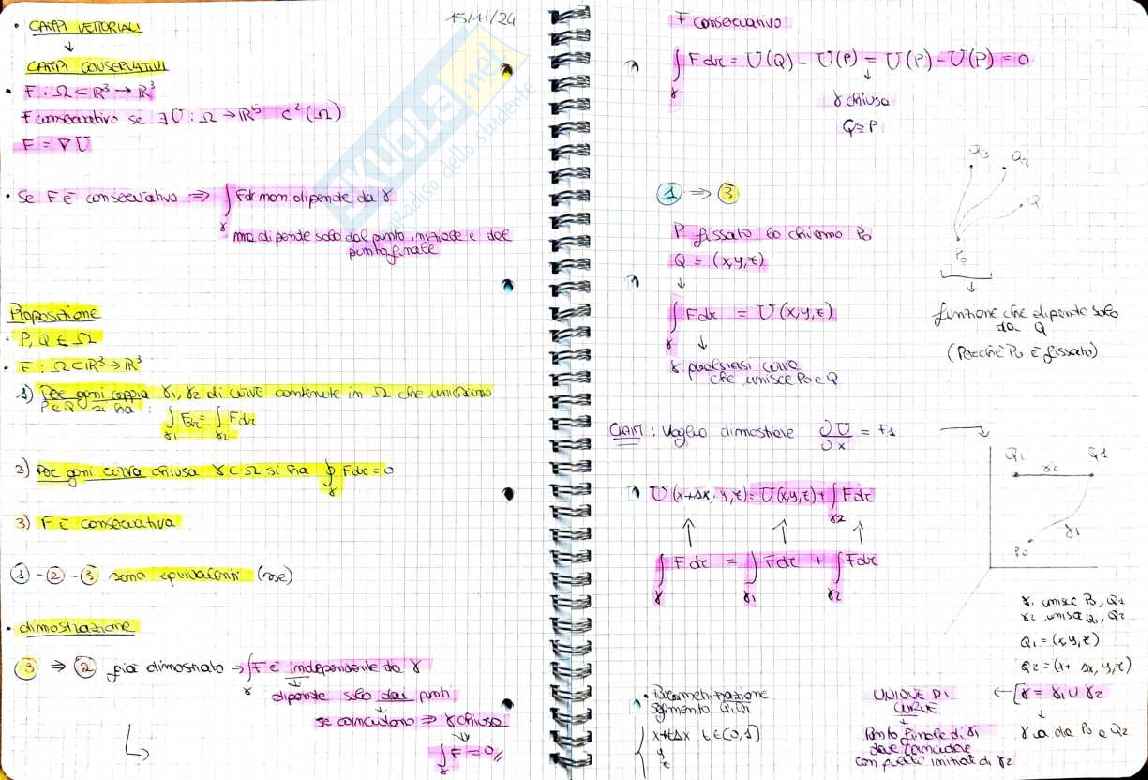 15/11/24
• CAMPI VETTORIALI
↓
CAMPI CONSERVATIVI
• F : Ω ⊂ R³ → R³
F conservativo se ∃ U : Ω → R C²(Ω)
F = ∇U
• Se F è conservativo ⇒ ∫γ F dr non dipende da γ
ma dipende solo dal punto iniziale e dal
punto finale
Proposizione
• P, Q ∈ Ω
• F : Ω ⊂ R³ → R³
1) Per ogni coppia γ1, γ2 di curve contenute in Ω che uniscono
P e Q si ha :
∫γ1 F dr = ∫γ2 F dr
2) Per ogni curva chiusa γ ⊂ Ω si ha ∮γ F dr = 0
3) F è conservativo
① - ② - ③ sono equivalenti
• dimostrazione
③ ⇒ ② già dimostrato → ∫γ F è indipendente da γ
dipende solo dai punti
se coincidono ⇒ γ chiusa
∫γ F = 0
F conservativo
∫γ F dr = U(Q) - U(P) = U(P) - U(P) = 0
↓
γ chiusa
Q ≡ P
① ⇒ ③
P fissato lo chiamo P0
Q = (x, y, z)
↓
∫γ F dr = U(x, y, z)
↓
γ qualsiasi curva
che unisce P0 e Q
Q3 Q2
Q
P0
↓
funzione che dipende solo
da Q
(Perché P0 è fissato)
CLAIM : Voglio dimostrare ∂U/∂x = F1
U(x+Δx, y, z) = U(x, y, z) + ∫γ2 F dr
↑ ↑ ↑
∫γ F dr = ∫γ1 F dr + ∫γ2 F dr
Q1 γ2 Q2
γ1
P0
γ1 unisce P0, Q1
γ2 unisce Q1, Q2
Q1 = (x, y, z)
Q2 = (x + Δx, y, z)
← [γ = γ1 ∪ γ2
↓
γ va da P0 a Q2
UNIONE DI
CURVE
↓
Punto finale di γ1
deve coincidere
con punto iniziale di γ2
• Parametrizzazione
segmento Q1Q2
{ x+tΔx t ∈ [0,1]
y
z
SKUOLA.net
paradiso dello studente